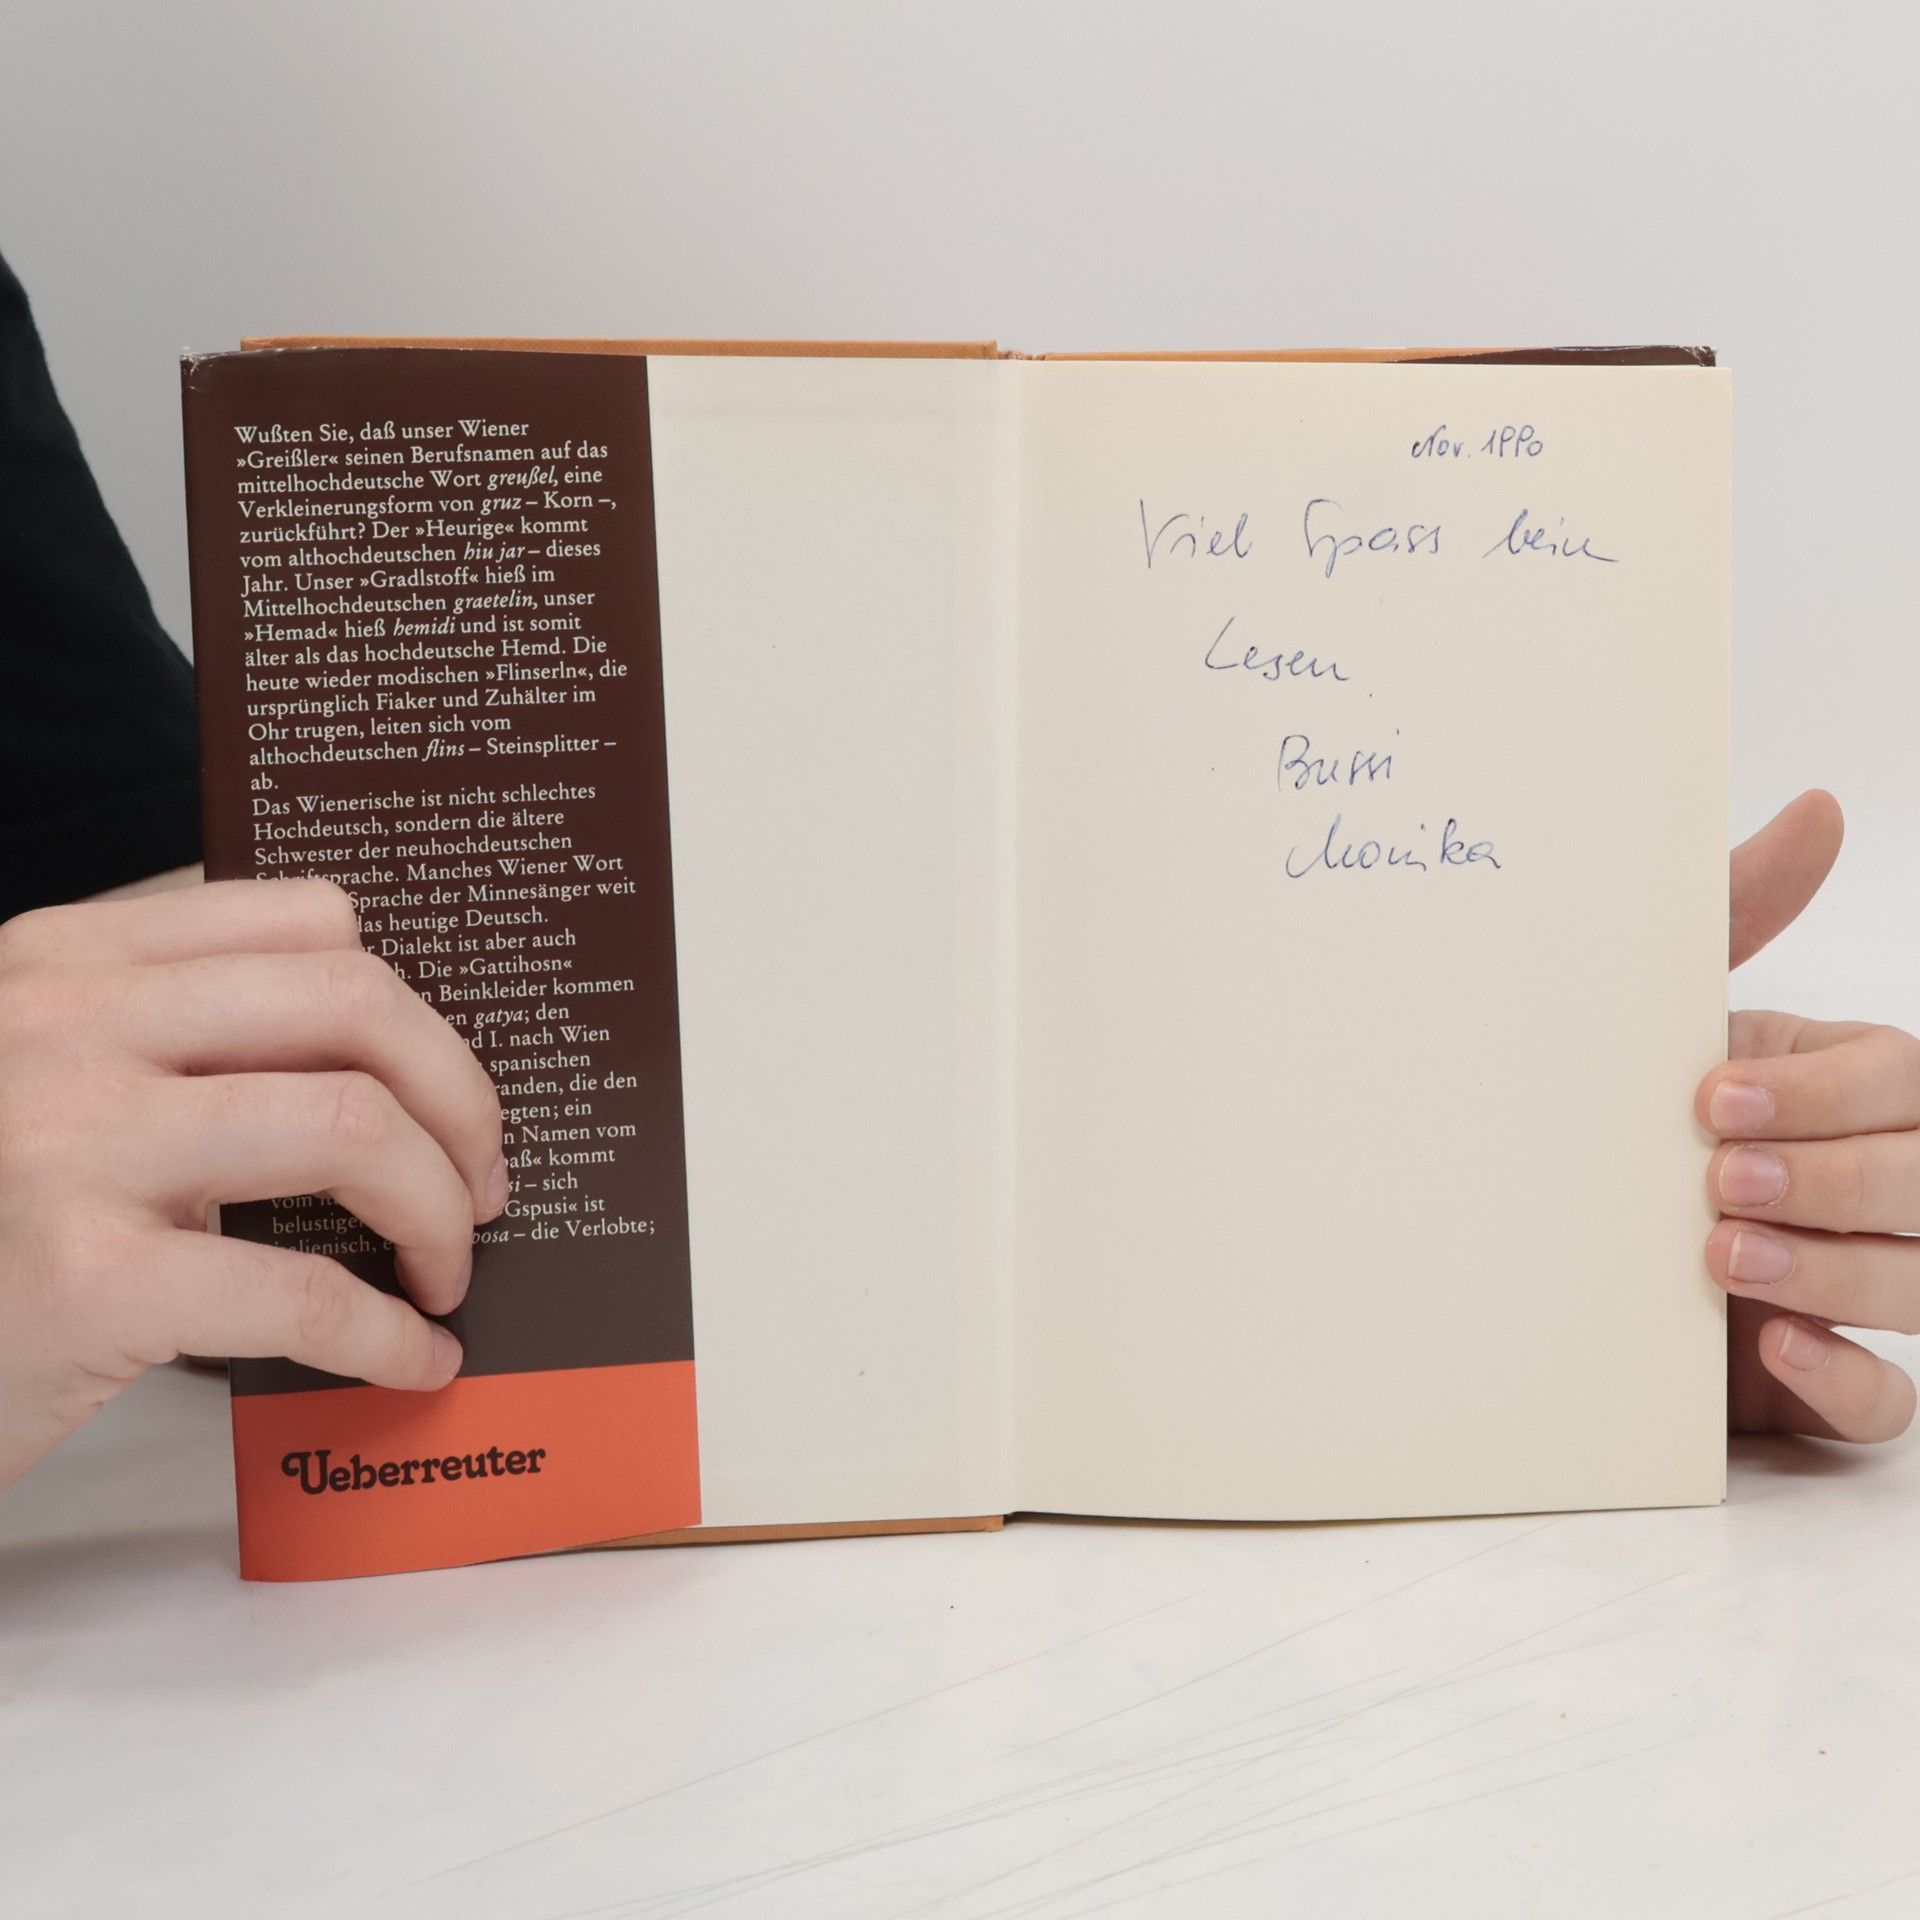 Wußten Sie, daß unser Wiener
»Greißler« seinen Berufsnamen auf das
mittelhochdeutsche Wort greußel, eine
Verkleinerungsform von gruz – Korn –,
zurückführt? Der »Heurige« kommt
vom althochdeutschen hiu jar – dieses
Jahr. Unser »Gradlstoff« hieß im
Mittelhochdeutschen graetelin, unser
»Hemad« hieß hemidi und ist somit
älter als das hochdeutsche Hemd. Die
heute wieder modischen »Flinserln«, die
ursprünglich Fiaker und Zuhälter im
Ohr trugen, leiten sich vom
althochdeutschen flins – Steinsplitter –
ab.
Das Wienerische ist nicht schlechtes
Hochdeutsch, sondern die ältere
Schwester der neuhochdeutschen
Schriftsprache. Manches Wiener Wort
Sprache der Minnesänger weit
das heutige Deutsch.
Dialekt ist aber auch
Die »Gattihosn«
Beinkleider kommen
gatya; den
I. nach Wien
spanischen
die den
ein
Namen vom
kommt
– sich
»Gspusi« ist
– die Verlobte;
Ueberreuter
Nov. 1990
Viel Spass beim
Lesen
Bussi
Monika